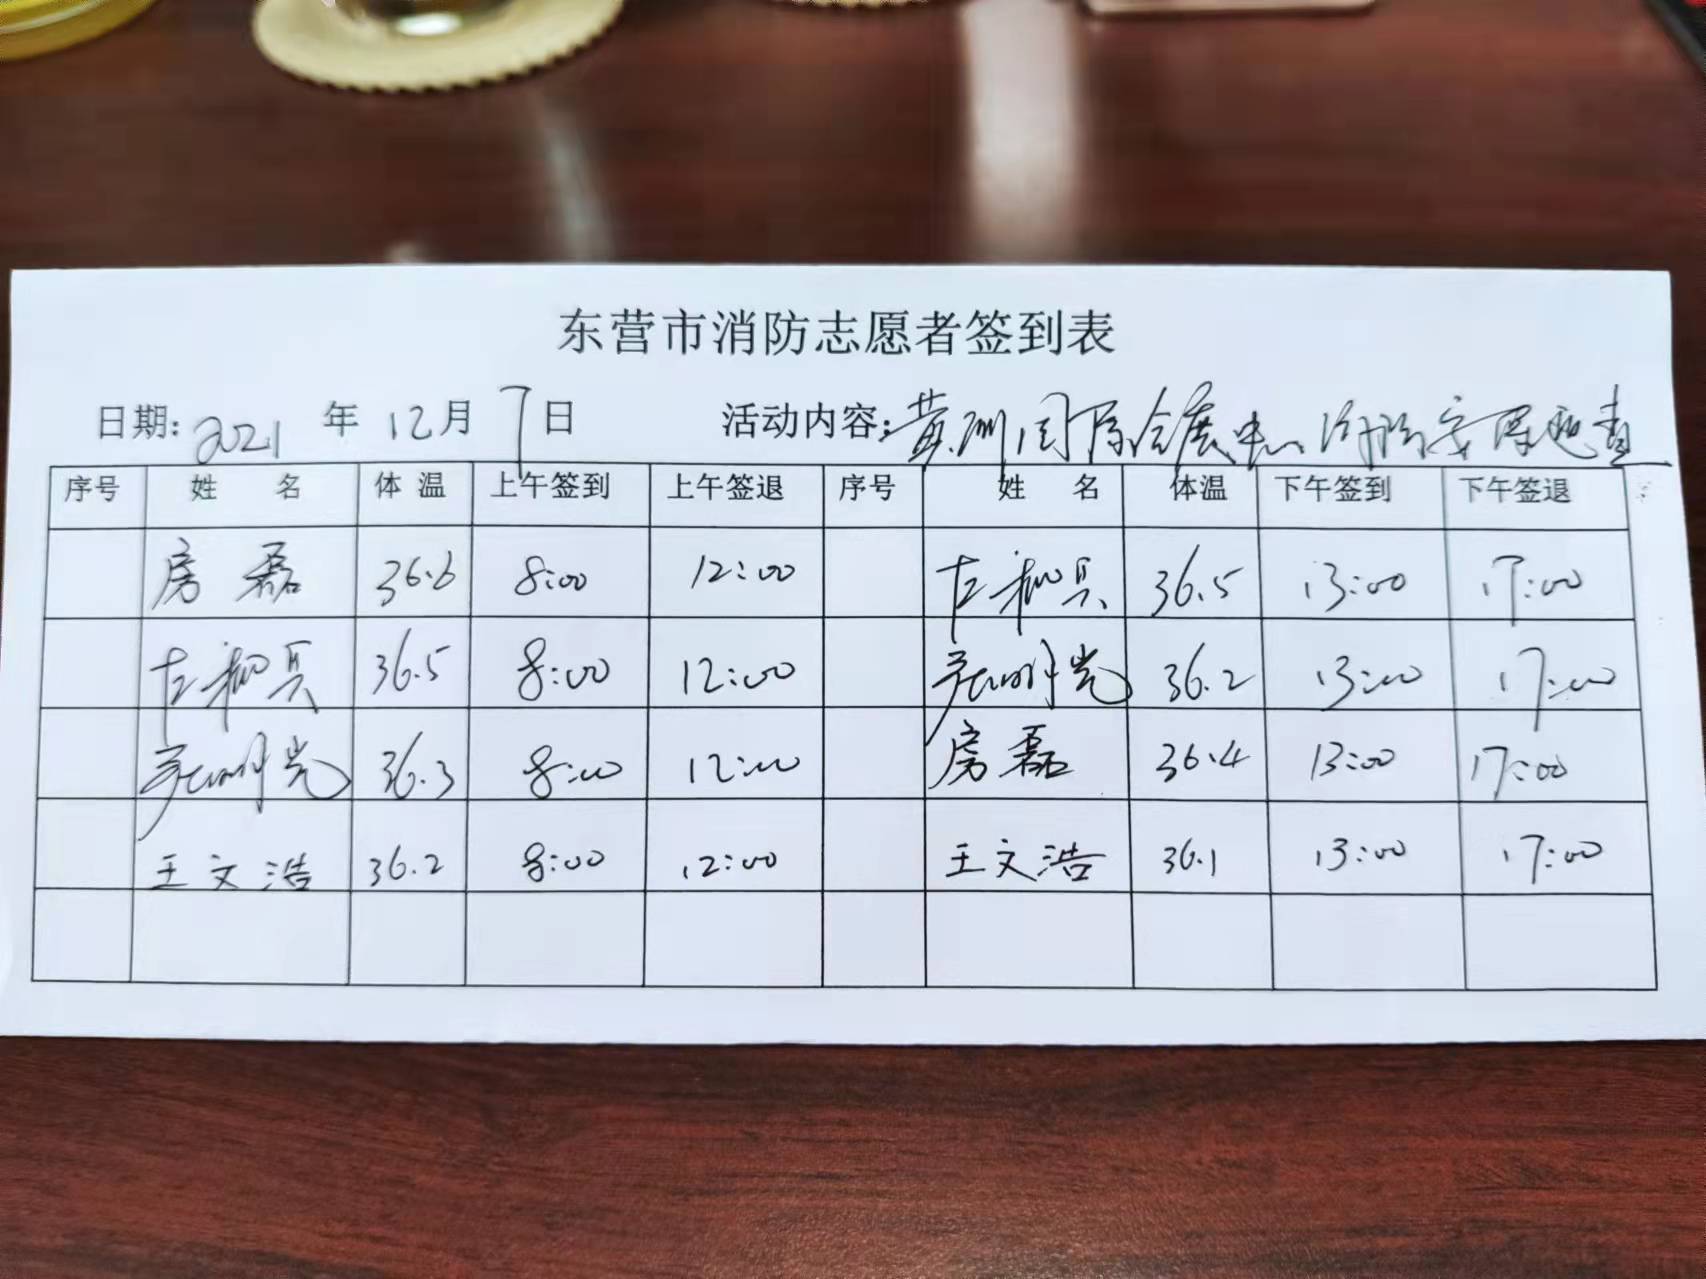 东营市消防志愿者签到表
日期: 2021 年 12 月 7 日 活动内容: 黄河国际会展中心消防安保巡查
序号 姓 名 体 温 上午签到 上午签退 序号 姓 名 体温 下午签到 下午签退
房磊 36.6 8:00 12:00 36.5 13:00 17:00
36.5 8:00 12:00 36.2 13:00 17:00
36.3 8:00 12:00 房磊 36.4 13:00 17:00
王文浩 36.2 8:00 12:00 王文浩 36.1 13:00 17:00